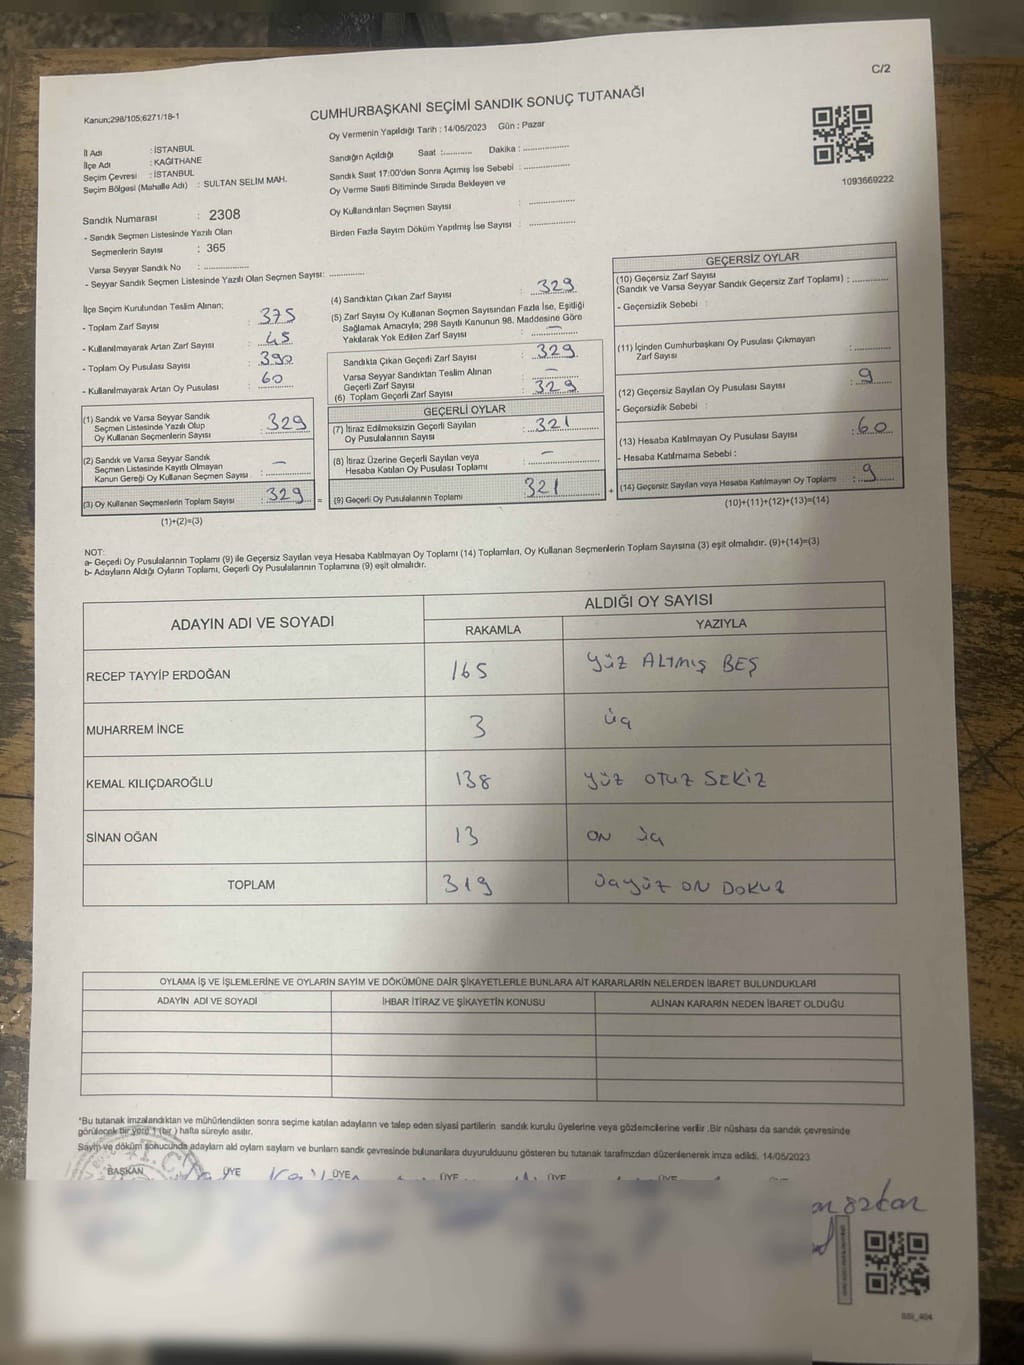 C/2
Kanun;298/105;6271/18-1
CUMHURBAŞKANI SEÇİMİ SANDIK SONUÇ TUTANAĞI
Oy Vermenin Yapıldığı Tarih : 14/05/2023 Gün : Pazar
İl Adı : İSTANBUL
İlçe Adı : KAĞITHANE
Seçim Çevresi : İSTANBUL
Seçim Bölgesi (Mahalle Adı) : SULTAN SELİM MAH.
Sandığın Açıldığı Saat :........... Dakika : ...................
Sandık Saat 17:00'den Sonra Açımış İse Sebebi : ...................
Oy Verme Saati Bitiminde Sırada Bekleyen ve
Oy Kullandırılan Seçmen Sayısı : ...................
Birden Fazla Sayım Döküm Yapılmış İse Sayısı : ...................
1093669222
Sandık Numarası : 2308
- Sandık Seçmen Listesinde Yazılı Olan
Seçmenlerin Sayısı : 365
Varsa Seyyar Sandık No : ...................
- Seyyar Sandık Seçmen Listesinde Yazılı Olan Seçmen Sayısı: ...............
İlçe Seçim Kurulundan Teslim Alınan;
- Toplam Zarf Sayısı : 375
- Kullanılmayarak Artan Zarf Sayısı : 45
- Toplam Oy Pusulası Sayısı : 390
- Kullanılmayarak Artan Oy Pusulası : 60
(1) Sandık ve Varsa Seyyar Sandık
Seçmen Listesinde Yazılı Olup
Oy Kullanan Seçmenlerin Sayısı : 329
(2) Sandık ve Varsa Seyyar Sandık
Seçmen Listesinde Kayıtlı Olmayan
Kanun Gereği Oy Kullanan Seçmen Sayısı : —
(3) Oy Kullanan Seçmenlerin Toplam Sayısı : 329 =
(1)+(2)=(3)
(4) Sandıktan Çıkan Zarf Sayısı : 329
(5) Zarf Sayısı Oy Kullanan Seçmen Sayısından Fazla İse, Eşitliği
Sağlamak Amacıyla; 298 Sayılı Kanunun 98. Maddesine Göre
Yakılarak Yok Edilen Zarf Sayısı : —
Sandıkta Çıkan Geçerli Zarf Sayısı : 329
Varsa Seyyar Sandıktan Teslim Alınan
Geçerli Zarf Sayısı : —
(6) Toplam Geçerli Zarf Sayısı : 329
GEÇERLİ OYLAR
(7) İtiraz Edilmeksizin Geçerli Sayılan
Oy Pusulalarının Sayısı : 321
(8) İtiraz Üzerine Geçerli Sayılan veya
Hesaba Katılan Oy Pusulası Toplamı : —
(9) Geçerli Oy Pusulalarının Toplamı 321 +
GEÇERSİZ OYLAR
(10) Geçersiz Zarf Sayısı
(Sandık ve Varsa Seyyar Sandık Geçersiz Zarf Toplamı) : ............
- Geçersizlik Sebebi :
(11) İçinden Cumhurbaşkanı Oy Pusulası Çıkmayan
Zarf Sayısı : ............
(12) Geçersiz Sayılan Oy Pusulası Sayısı : 9
- Geçersizlik Sebebi :
(13) Hesaba Katılmayan Oy Pusulası Sayısı : 60
- Hesaba Katılmama Sebebi :
(14) Geçersiz Sayılan veya Hesaba Katılmayan Oy Toplamı : 9
(10)+(11)+(12)+(13)=(14)
NOT:
a- Geçedi Oy Pusulalarının Toplamı (9) ile Geçersiz Sayılan veya Hesaba Katılmayan Oy Toplamı (14) Toplamları, Oy Kullanan Seçmenlerin Toplam Sayısına (3) eşit olmalıdır. (9)+(14)=(3)
b- Adayların Aldığı Oyların Toplamı, Geçerli Oy Pusulalarının Toplamına (9) eşit olmalıdır.
ADAYIN ADI VE SOYADI
ALDIĞI OY SAYISI
RAKAMLA YAZIYLA
RECEP TAYYİP ERDOĞAN 165 YÜZ ALTMIŞ BEŞ
MUHARREM İNCE 3 üç
KEMAL KILIÇDAROĞLU 138 YÜZ OTUZ SEKİZ
SİNAN OĞAN 13 ON üç
TOPLAM 319 üçyüz ON DOKUZ
OYLAMA İŞ VE İŞLEMLERİNE VE OYLARIN SAYIM VE DÖKÜMÜNE DAİR ŞİKAYETLERLE BUNLARA AİT KARARLARIN NELERDEN İBARET BULUNDUKLARI
ADAYIN ADI VE SOYADI İHBAR İTİRAZ VE ŞİKAYETİN KONUSU ALINAN KARARIN NEDEN İBARET OLDUĞU
*Bu tutanak imzalandıktan ve mühürlendikten sonra seçime katılan adayların ve talep eden siyasi partilerin sandık kurulu üyelerine veya gözlemcilerine verilir .Bir nüshası da sandık çevresinde
görülecek bir yere 1 (bir ) hafta süreyle asılır.
Sayım ve döküm sonucunda adayların aldı oyların sayların ve bunların sandık çevresinde bulunanlara duyurulduunu gösteren bu tutanak tarafımızdan düzenlenerek imza edildi. 14/05/2023
BAŞKAN ÜYE ÜYE ÜYE ÜYE ÜYE ÜYE
T.C.